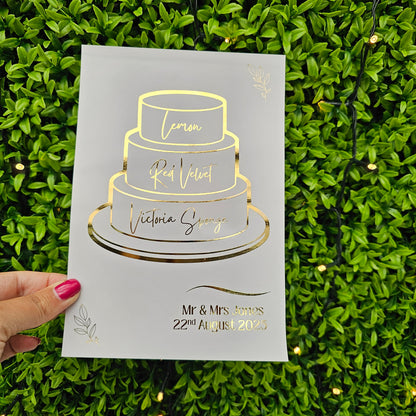 Lemon
Red Velvet
Victoria Sponge
Mr & Mrs Jones
22nd August 2025